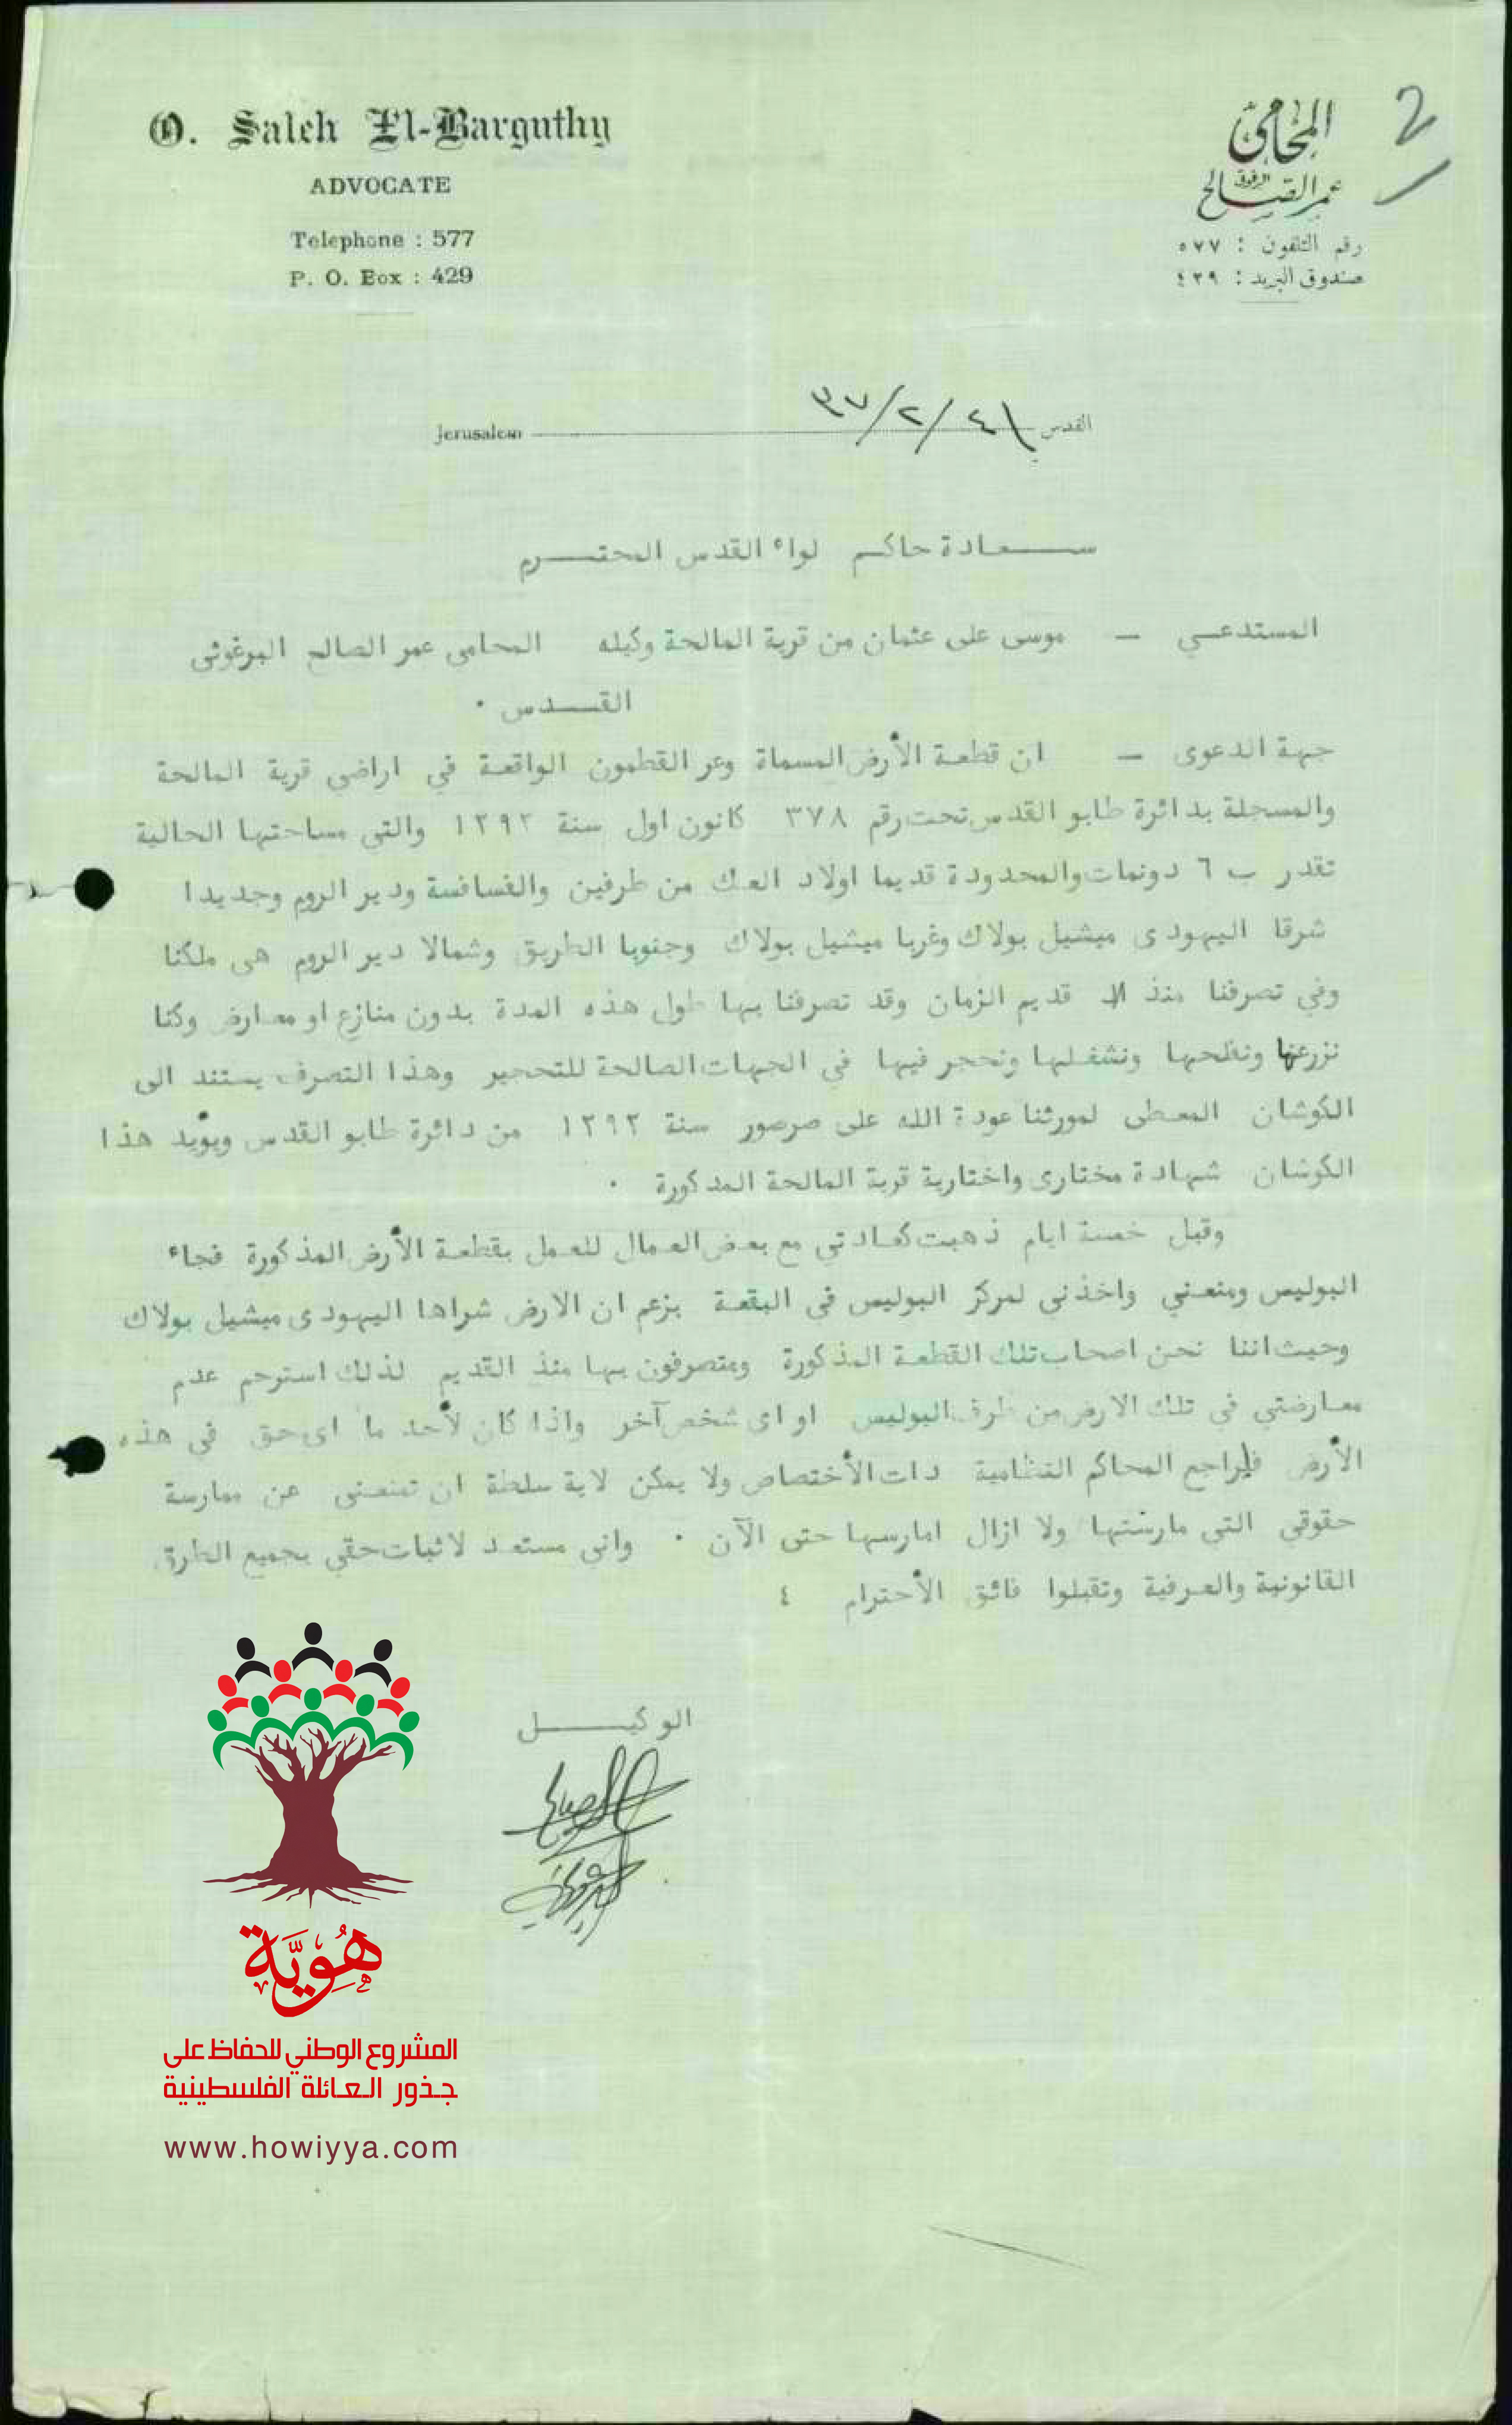 O. Saleh El-Barguthy
ADVOCATE
Telephone : 577
P. O. Box : 429
2
المحامي
عمر الصالح البرغوثي
رقم التلفون : ٥٧٧
صندوق البريد : ٤٢٩
القدس ٣٧/٢/٤١ Jerusalem
سعادة حاكم لواء القدس المحترم
المستدعي — موسى علي عثمان من قرية المالحة وكيله المحامي عمر الصالح البرغوثي
القدس ٠
جهة الدعوى — ان قطعة الأرض المسماة وعر القطمون الواقعة في اراضي قرية المالحة
والمسجلة بدائرة طابو القدس تحت رقم ٣٧٨ كانون اول سنة ١٢٩٢ والتي مساحتها الحالية
تقدر ب ٦ دونمات والمحدودة قديما اولاد العك من طرفين والفسافسة ودير الروم وجديدا
شرقا اليهودى ميشيل بولاك وغربا ميشيل بولاك وجنوبا الطريق وشمالا دير الروم هى ملكنا
وفي تصرفنا منذ قديم الزمان وقد تصرفنا بها طول هذه المدة بدون منازع او معارض وكنا
نزرعها ونفلحها ونشغلها ونحجر فيها في الجهات الصالحة للتحجير وهذا التصرف يستند الى
الكوشان المعطى لمورثنا عودة الله على صرصور سنة ١٢٩٢ من دائرة طابو القدس ويؤيد هذا
الكوشان شهادة مختارى واختارية قرية المالحة المذكورة ٠
وقبل خمسة ايام ذهبت كعادتي مع بعض العمال للعمل بقطعة الأرض المذكورة فجاء
البوليس ومنعني واخذني لمركز البوليس فى البقعة بزعم ان الارض شراها اليهودى ميشيل بولاك
وحيث اننا نحن اصحاب تلك القطعة المذكورة ومتصرفون بها منذ القديم لذلك استرحم عدم
معارضتي في تلك الارض من طرف البوليس او اى شخص آخر واذا كان لأحد ما اى حق فى هذه
الأرض فليراجع المحاكم النظامية ذات الأختصاص ولا يمكن لاية سلطة ان تمنعنى عن ممارسة
حقوقي التي مارستها ولا ازال امارسها حتى الآن ٠ واني مستعد لاثبات حقي بجميع الطرق
القانونية والعرفية وتقبلوا فائق الأحترام ٤
الوكيل
هُوِيَّة
المشروع الوطني للحفاظ على
جذور العائلة الفلسطينية
www.howiyya.com